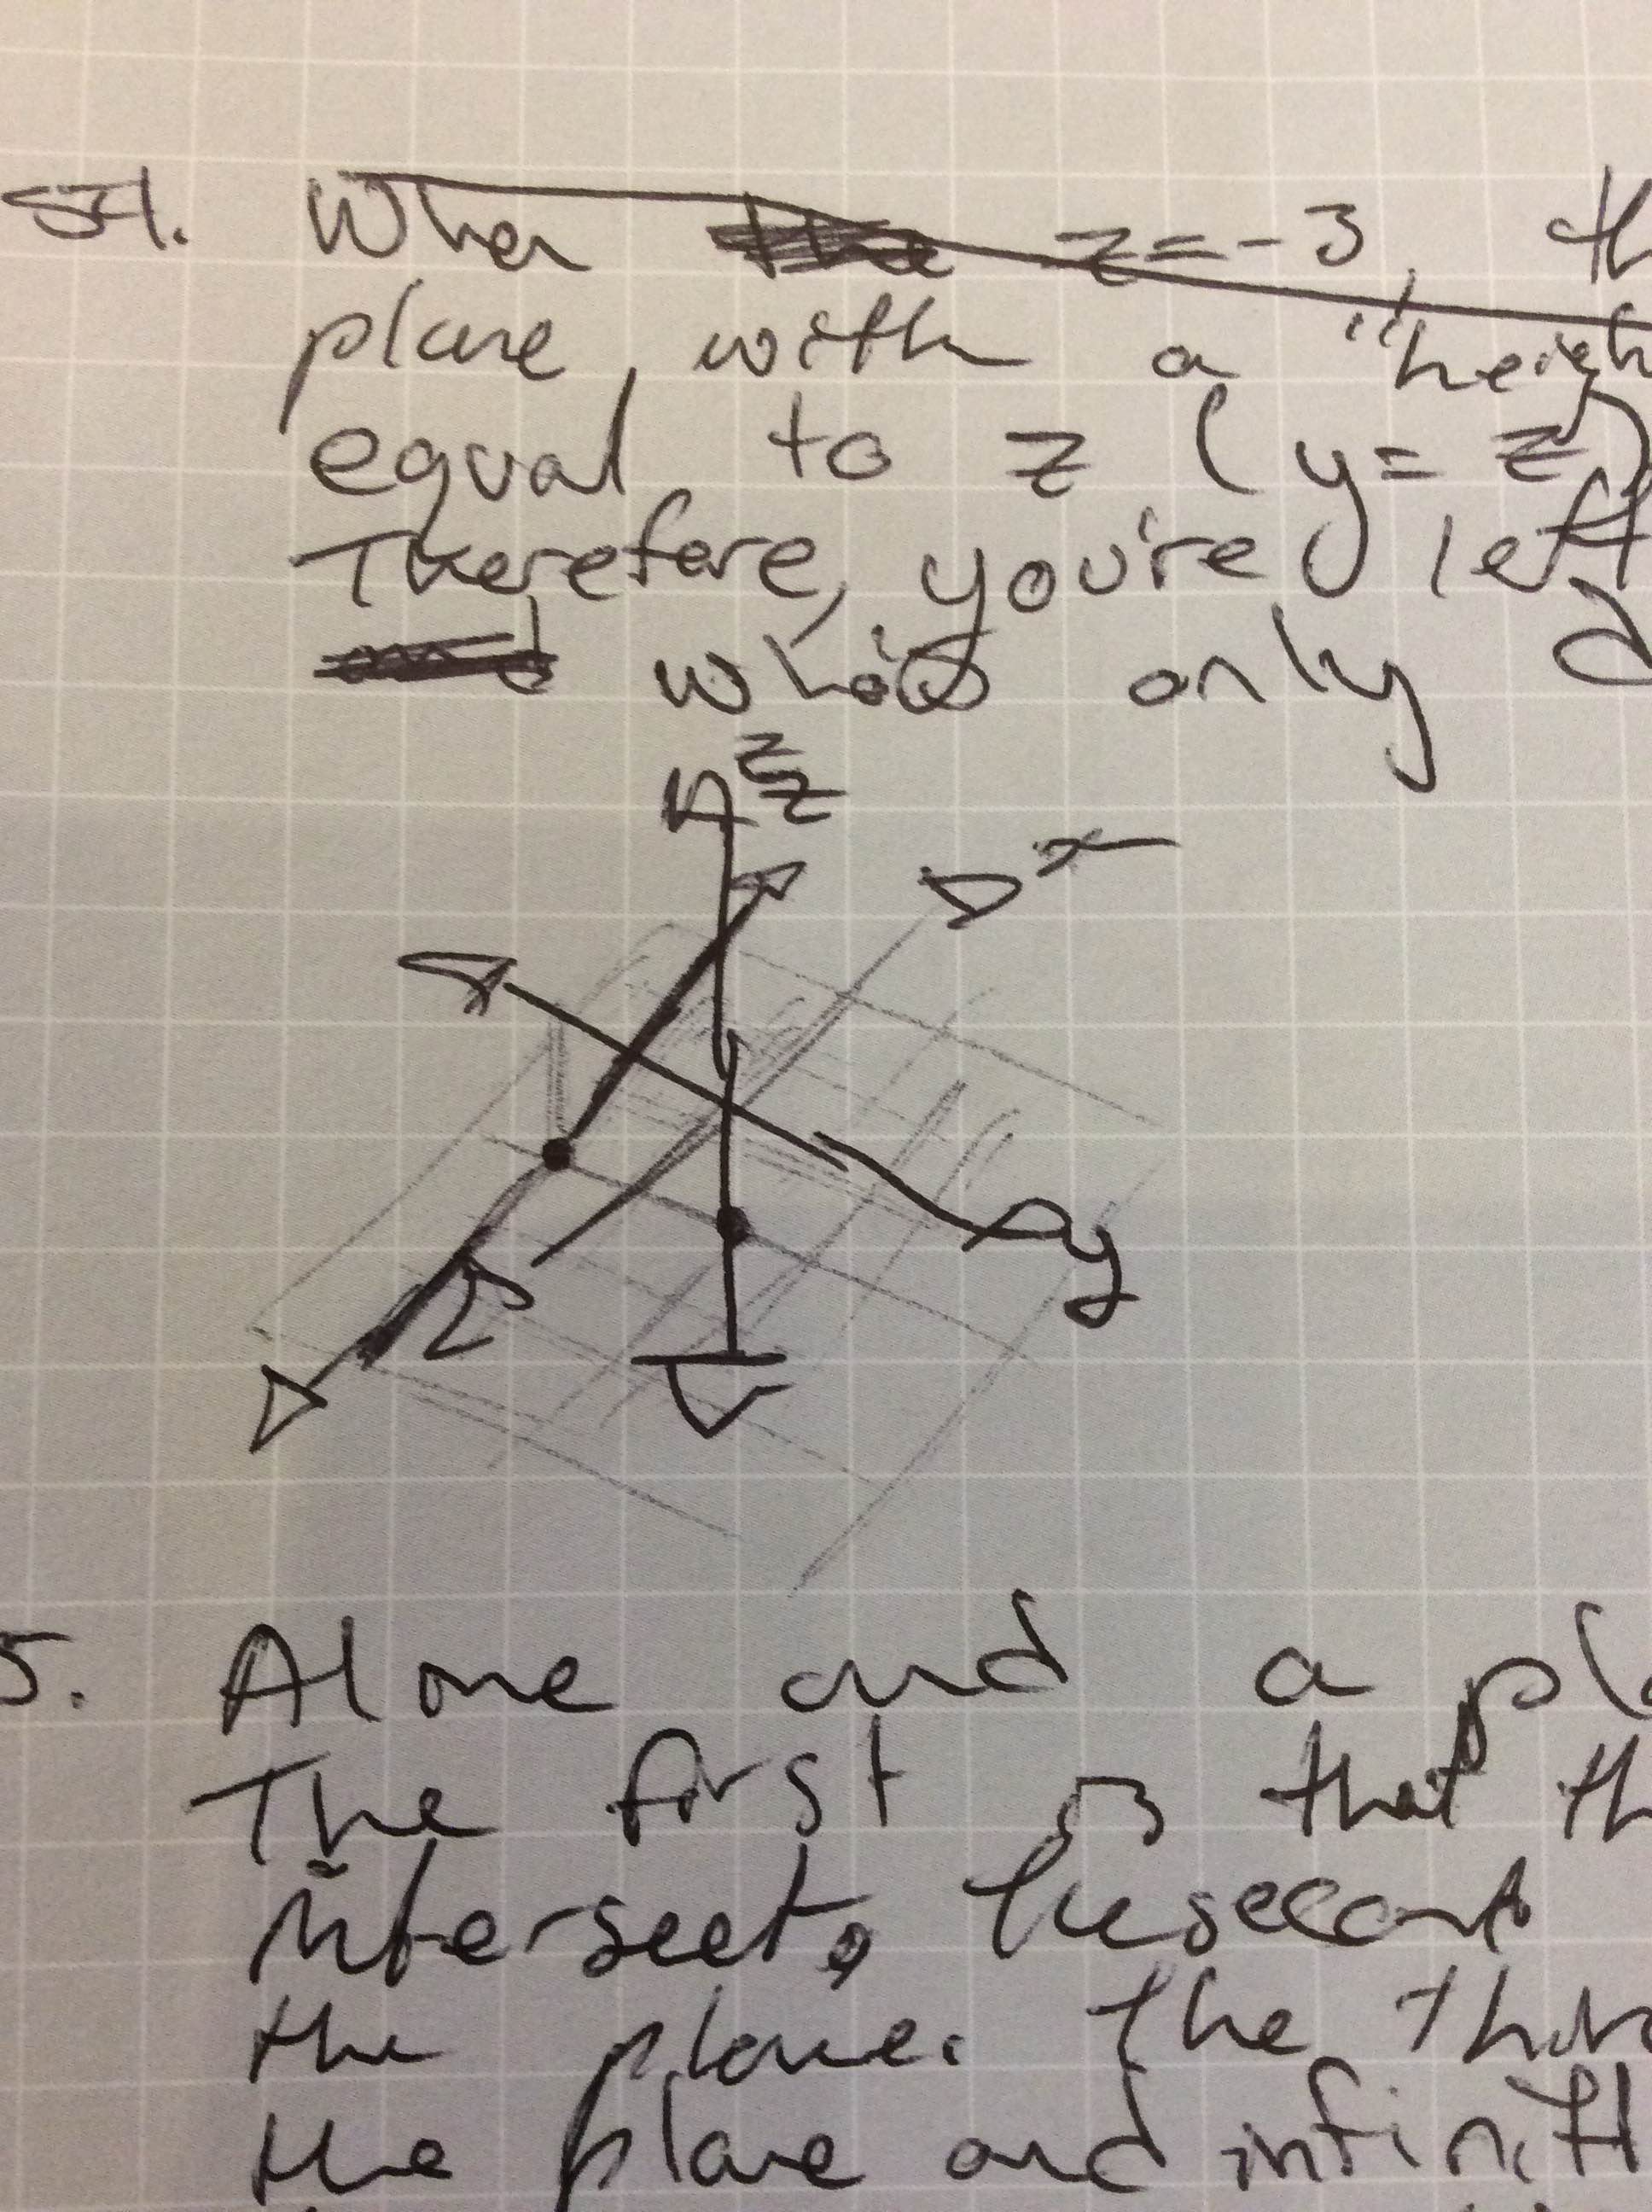 54. When the z=-3, th
plane, with a "heigh
equal to z (y=z)
Therefore, you're left
and who's only d
z
z
x
y
5. A lone and a pla
The first is that th
intersect. The second
the plane. The thir
the plane and infinit